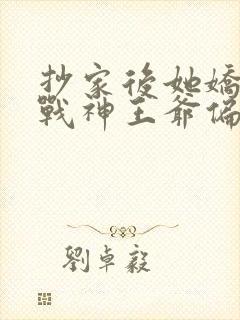 抄家後她嬌
戰神王爺偏
劉卓毅